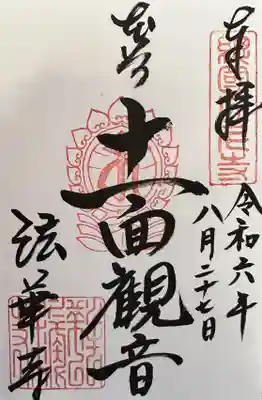 奉拝
令和六年
八月二十七日
本尊
十一面觀音
法華寺